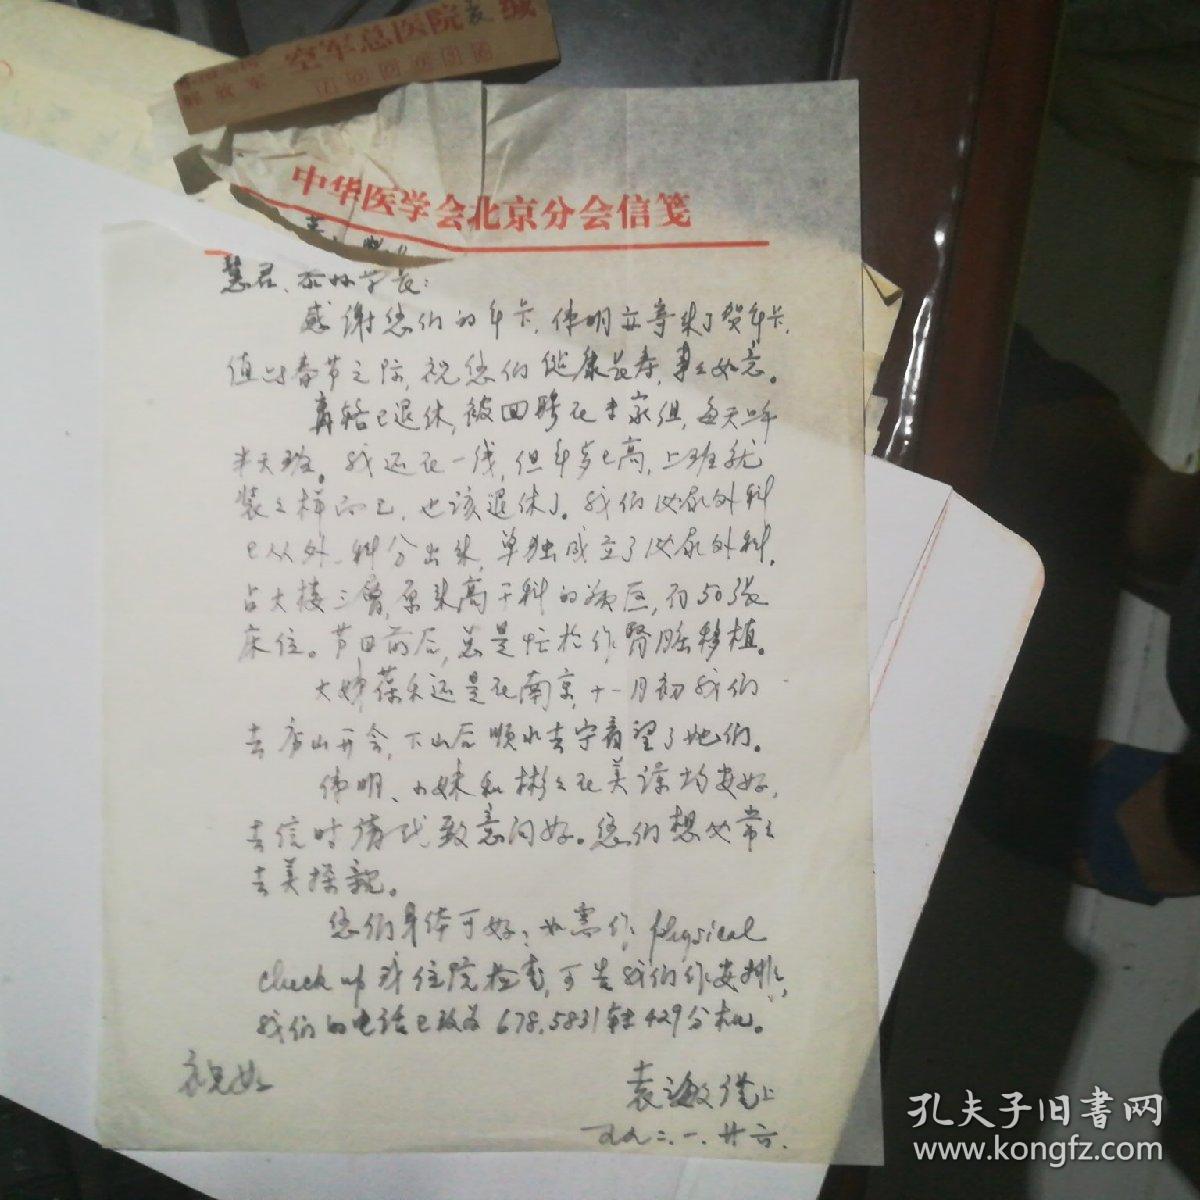 空军总医院
解放军
中华医学会北京分会信笺
慧君、学长：
感谢您们的年卡，伟明亦寄来了贺年卡，
值此春节之际，祝您们健康长寿，事事如意。
已退休，被回聘在专家组，每天上午
半天班。我还在一线，但年岁已高，上班就
装装样而已，也该退休了。我们泌尿外科
已从外科分出来，单独成立了泌尿外科，
占大楼三层，原来高干科的病区，有50张
床位。节日前后，总是忙于作肾脏移植。
大姊葆禾还是在南京，十一月初我们
去庐山开会，下山后顺水去宁看望了她们。
伟明、小妹和彬彬在美谅均安好，
去信时请代致意问好。您们想必常常
去美探亲。
您们身体可好？如需作 physical
check up 或住院检查，可告我们作安排，
我们的电话已改为 678.5831转429分机。
祝好
袁 上
一.廿六.
孔夫子旧书网
www.kongfz.com